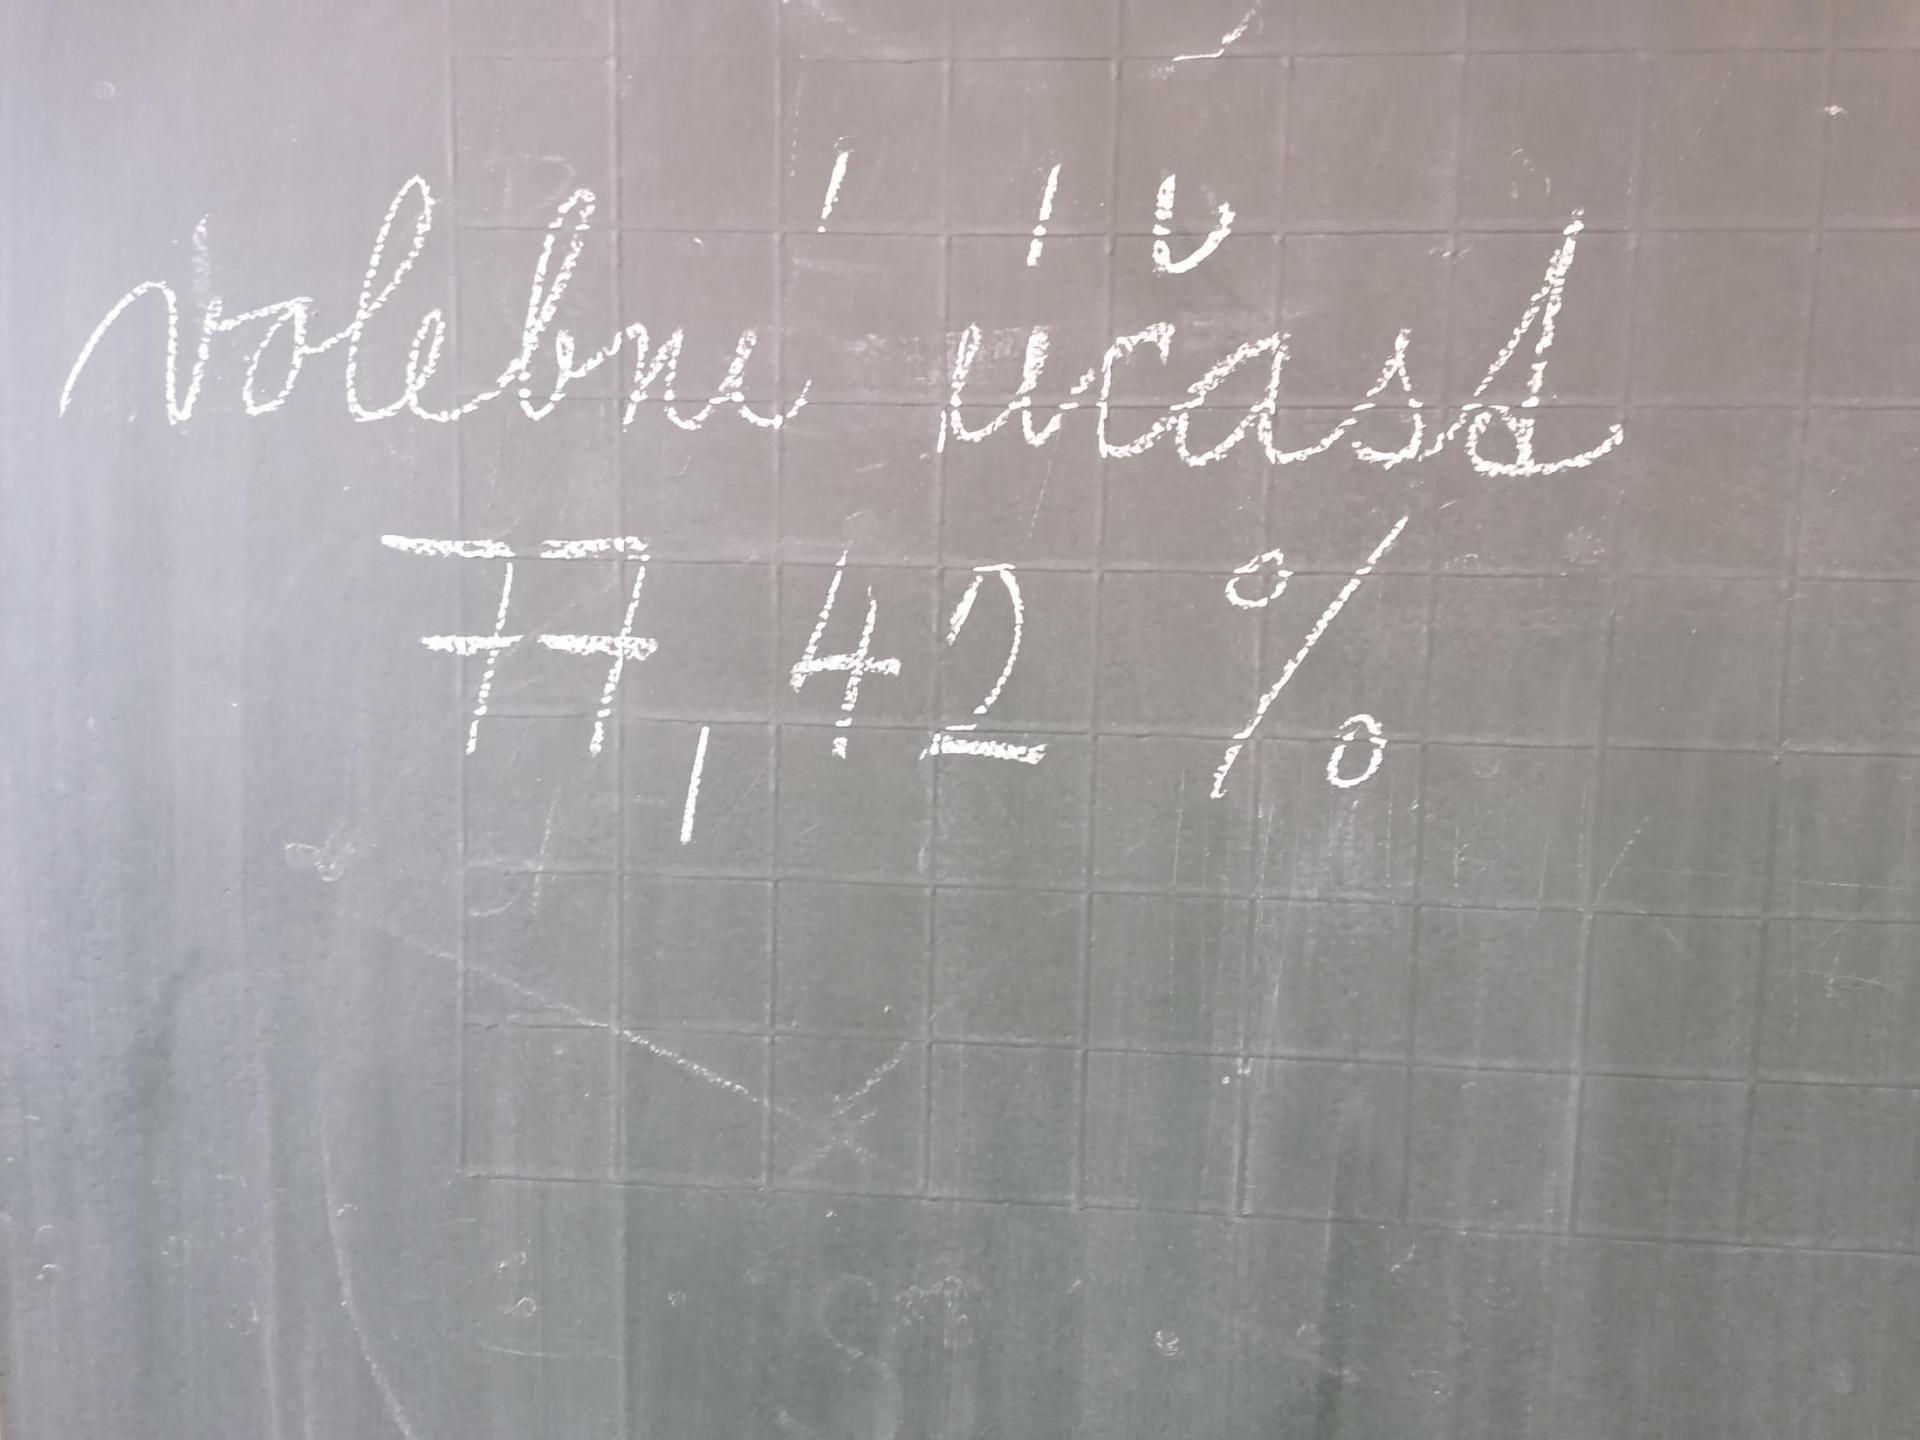 volební účast
77,42 %